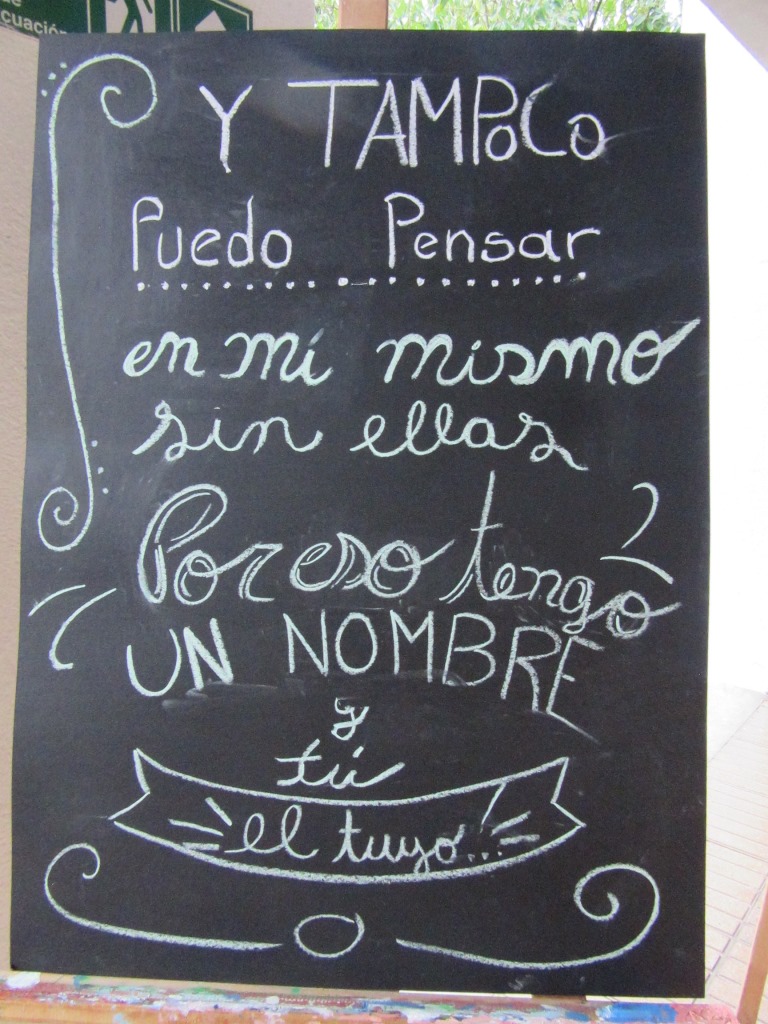 de
cuación
Y TAMPOCO
Puedo Pensar
en mí mismo
sin ellas
Por eso tengo
UN NOMBRE
y
tú
el tuyo...